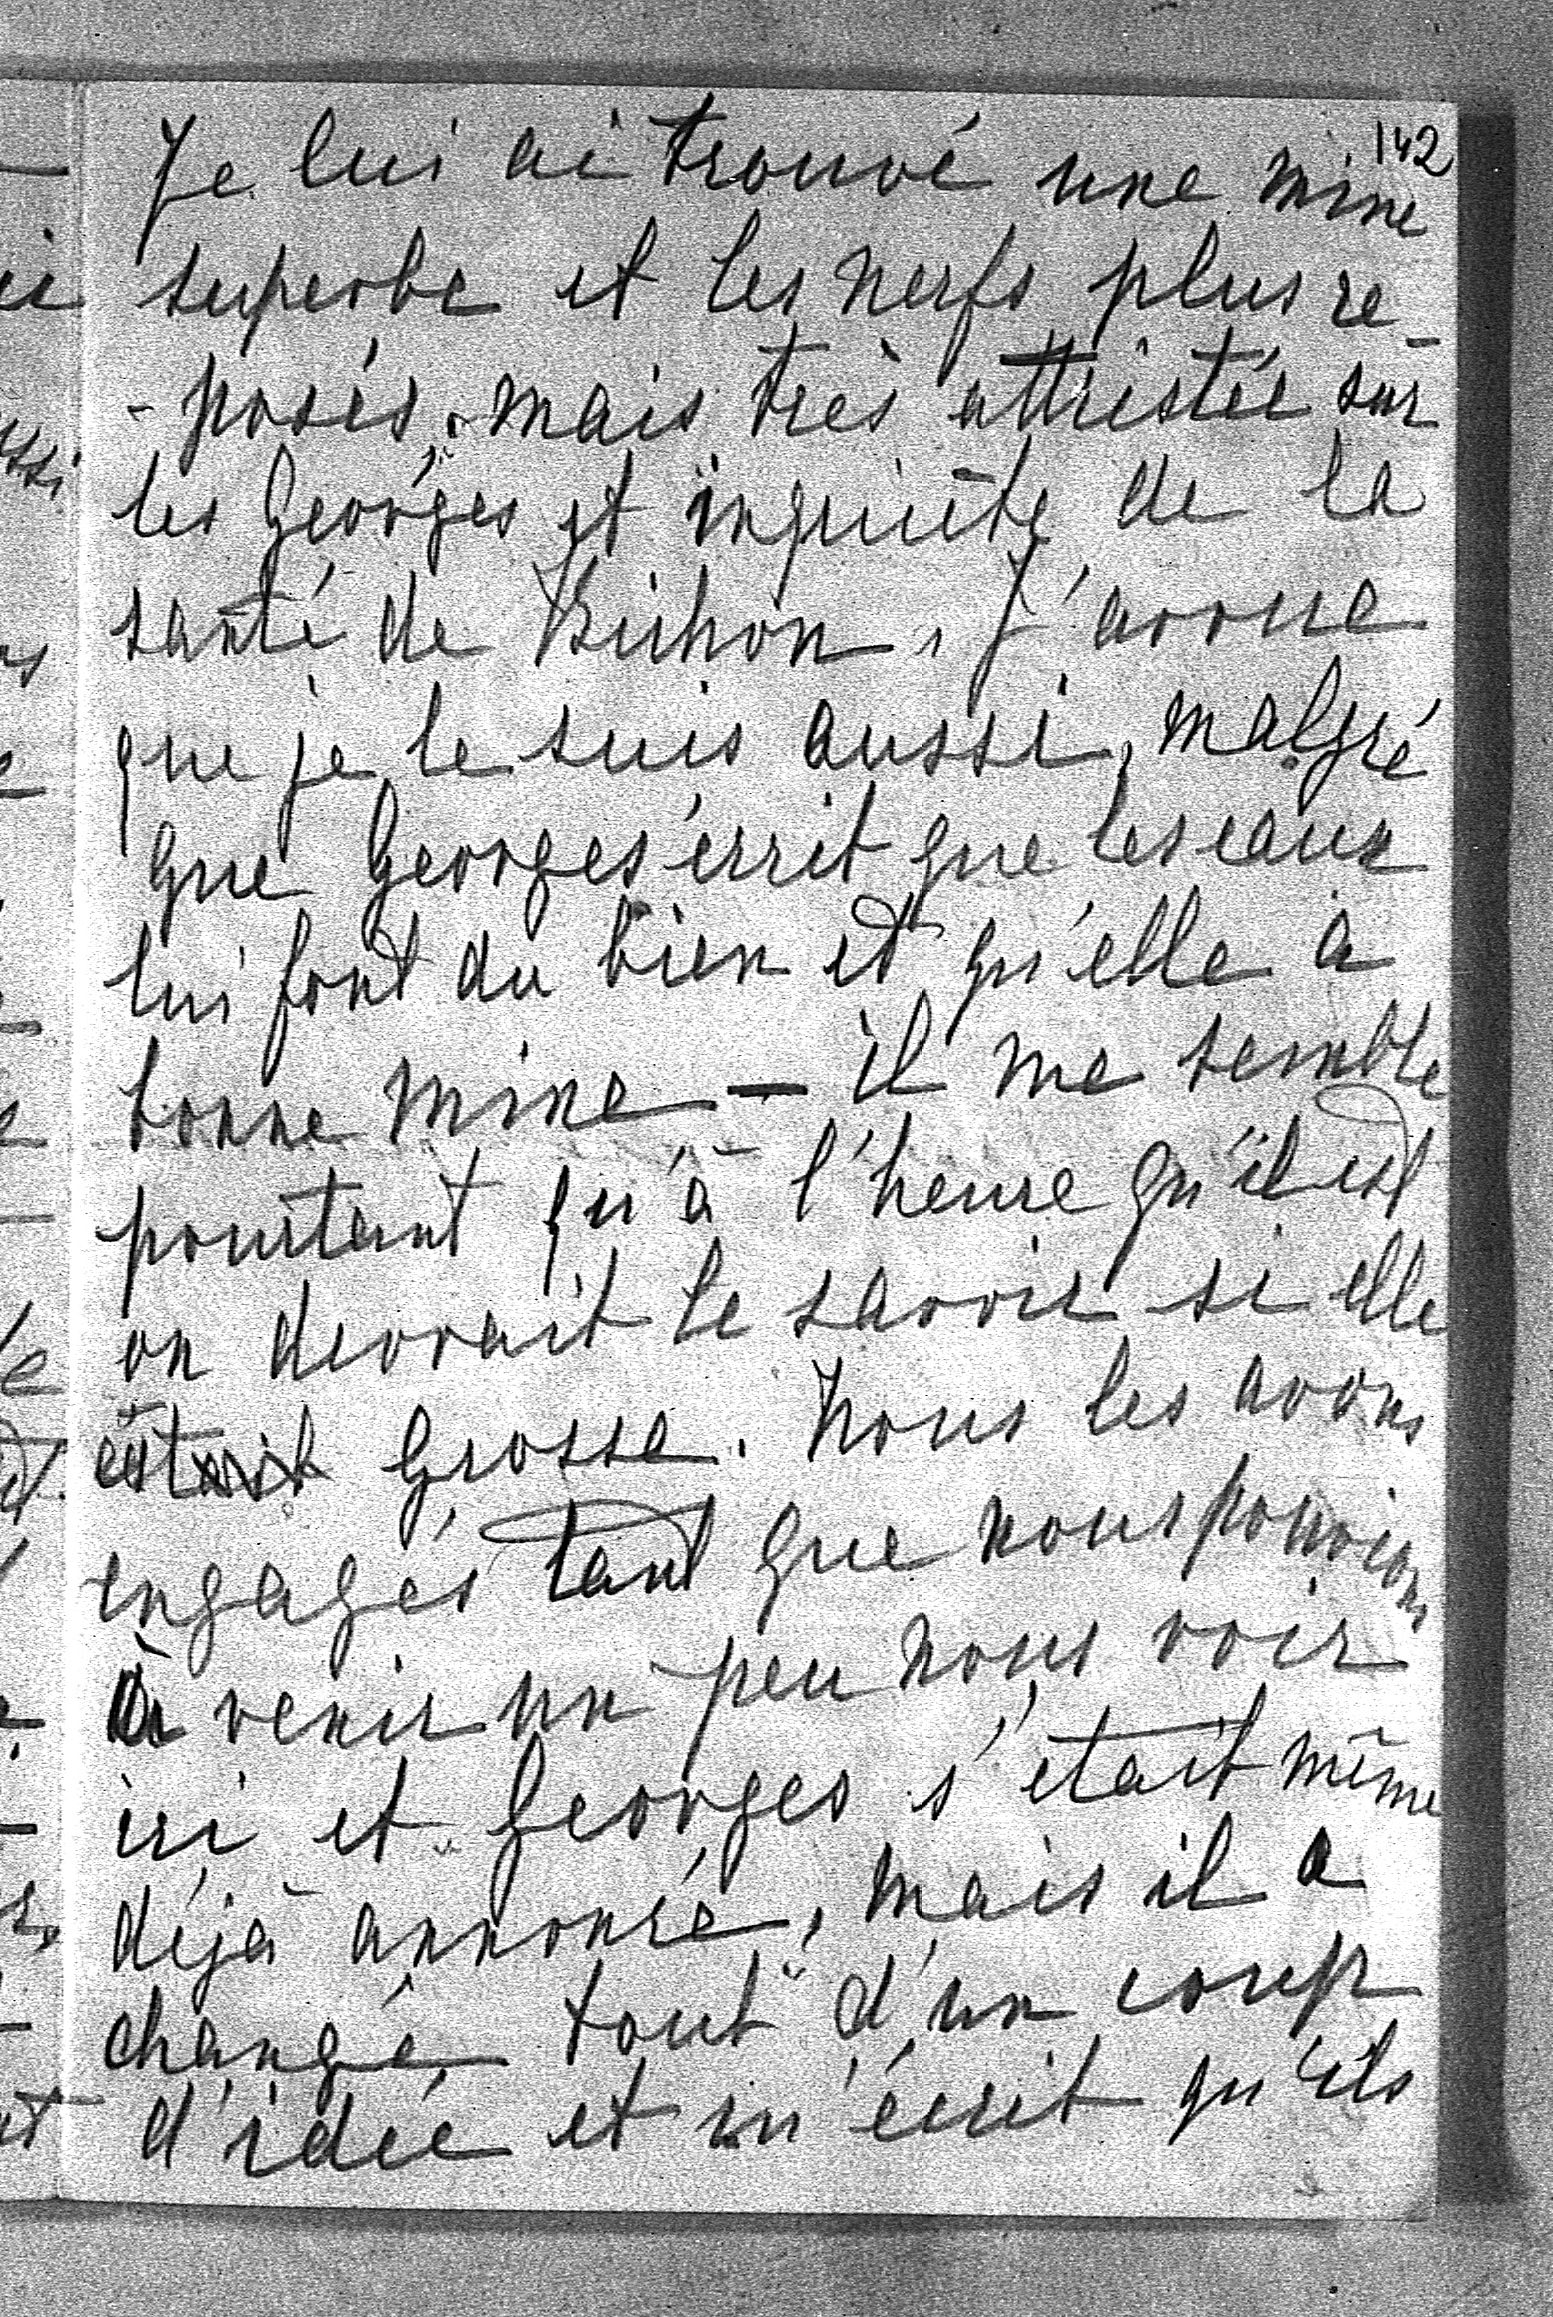 142
Je lui ai trouvé une mine
superbe et les nerfs plus re-
-posés, mais très attristée sur
les Georges et inquiète de la
santé de Bichon. J'avoue
que je le suis aussi, malgré
que Georges écrit que les eaux
lui font du bien et qu'elle a
bonne mine — il me semble
pourtant qu'à l'heure qu'il est
on devrait le savoir si elle
était grosse. Nous les avons
engagés tant que nous pouvions
à venir un peu nous voir
ici et Georges s'était même
déjà annoncé, mais il a
changé tout d'un coup
d'idée et m'écrit qu'ils